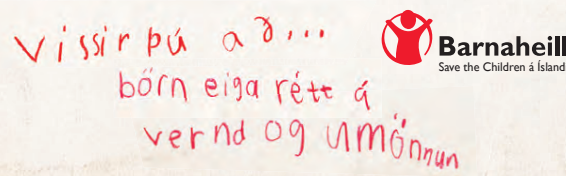 Vissir þú að...
börn eiga rétt á
vernd og umönnun
Barnaheill
Save the Children á Ísland